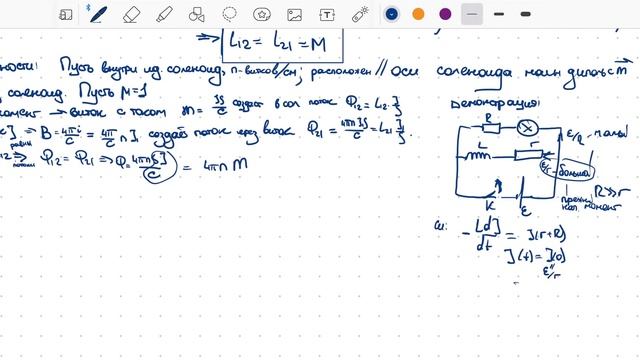 => L₁₂ = L₂₁ = M
ности: Пусть внутри ид. соленоид, n-витков/см; расположен // оси соленоида магн. диполь m
соленоид. Пусть μ=1
момент → виток с током m = JS/c создаёт в сол. поток Φ₁₂ = L₁₂ J
=> B = 4πi/c = 4π/c n J, создаёт поток через виток Φ₂₁ = 4πnJS/c = L₂₁ J.
=> Φ₁₂ = Φ₂₁ => Φ = 4πnSJ/c = 4πn m
Демонстрация:
R
ε/R - малый
L r
ε/r - большой
K ε
R≫r
момент
си: - L dJ/dt = J(r+R)
J(t) = J(0)
ε/r